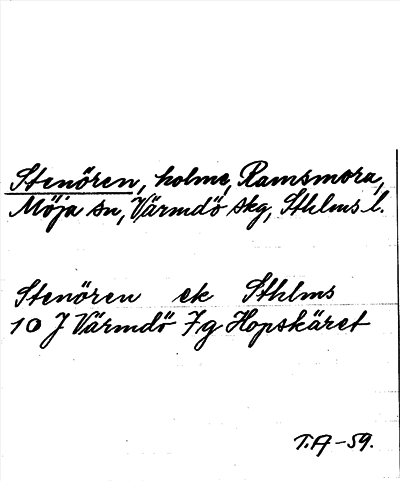 Stenören, holme, Ramsmora,
Möja sn, Värmdö skg, Sthlms l.
Stenören ek Sthlms
10 J Värmdö 7g Hopskäret
T.A -59.